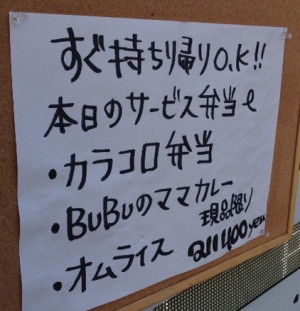 すぐ持ち帰りO.K!!
本日のサービス弁当
・カラコロ弁当
・BuBuのママカレー
現品限り
・オムライス all 400yen